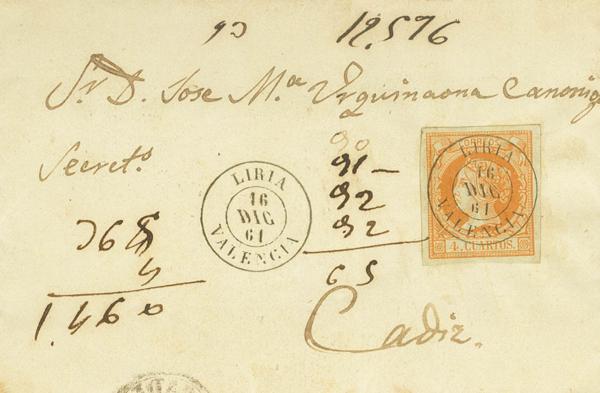 90 19.576
Sr. D. Jose Ma. Urquinaona Canonigo
Secreto.
90
91 -
92
92
65
365
4
1.460
LIRIA
16
DIC
61
VALENCIA
LIRIA
16
DIC
61
VALENCIA
4 CUARTOS.
Cadiz.